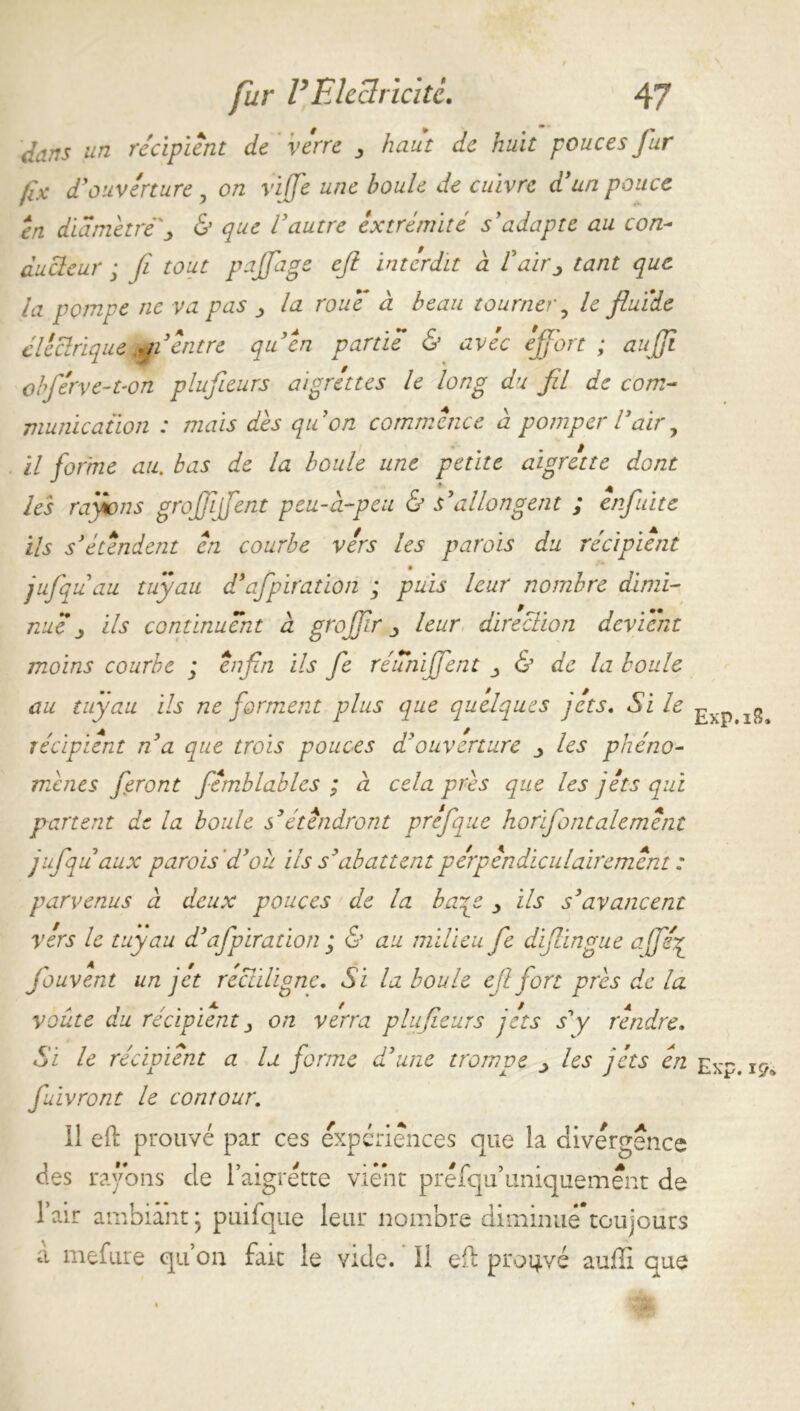 ſur l'Electricité. 47
dans un récipient de vérre, haut de huit pouces ſur
ſix d'ouvérture, on viſſe une boule de cuivre d'un pouce
ên diamètre, & que l'autre éxtrémité s'adapte au con-
ducteur ; ſi tout paſſage eſt intérdit à l'air, tant que
la pompe ne va pas, la rouë à beau tourner, le fluide
éléctrique n'êntre qu'ên partië & avéc éffort ; auſſi
obſérve-t-on pluſieurs aigréttes le long du fil de com-
municatïon : mais dès qu'on commênce à pomper l'air,
il forme au bas de la boule une petite aigrétte dont
lés rayons groſſiſſent peu-à-peu & s'allongent ; ênſuite
ils s'étêndent ên courbe vérs les parois du récipiênt
juſqu'au tuÿau d'aſpiration ; puis leur nombre dimi-
nuë, ils continuënt à groſſir, leur diréction deviënt
moins courbe ; ênfin ils ſe réüniſſent, & de la boule
au tuÿau ils ne forment plus que quélques jéts. Si le Exp. 18.
récipiênt n'a que trois pouces d'ouvérture, les phéno-
mènes ſeront ſêmblables ; à cela près que les jéts qui
partent de la boule s'étêndront préſque horiſontalemênt
juſqu'aux parois d'où ils s'abattent pérpêndiculairemênt :
parvenus à deux pouces de la baze, ils s'avancent
vérs le tuÿau d'aſpiration ; & au milieu ſe diſtingue aſſéz
ſouvênt un jét réctiligne. Si la boule eſt fort près de la
voûte du récipiênt, on vérra pluſieurs jéts s'y rêndre.
Si le récipiênt a la forme d'une trompe, les jéts ên Exp. 19.
ſuivront le contour.
Il eſt prouvé par ces éxpériênces que la divérgênce
des raÿons de l'aigrétte viënt préſqu'uniquemênt de
l'air ambiânt ; puiſque leur nombre diminuë toujours
à meſure qu'on fait le vide. Il eſt prouvé auſſi que